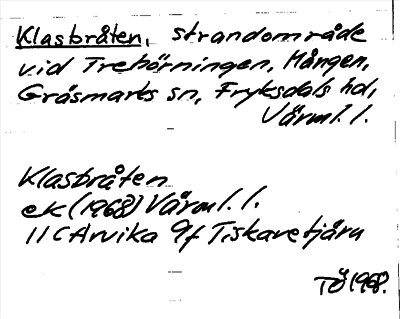 Klasbråten, strandområde
vid Trehörningen, Mången,
Gräsmarks sn, Fryksdals hd,
Värml. l.
Klasbråten
ek (1968) Värml. l.
11C Arvika 9f Tiskaretjärn
TÖ 1968.